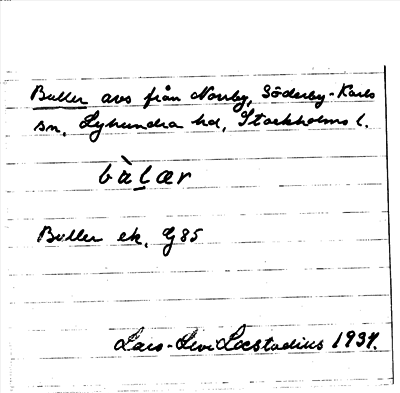 Buller avs från Norrby, Söderby-Karls
sn, Lyhundra hd, Stockholms l.
bùlær
Buller ek. G 85
Lars-Levi Læstadius 1937.